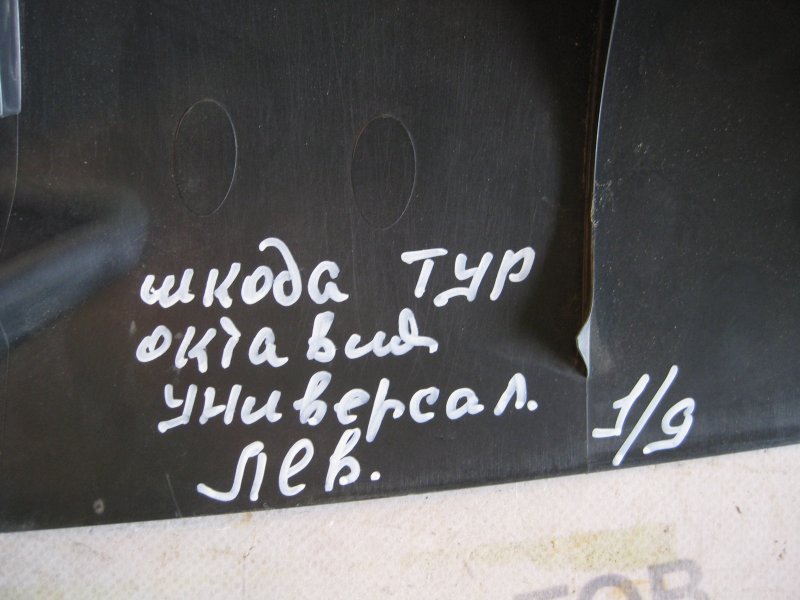 шкода ТУР
октавия
универсал.
лев.
1/9